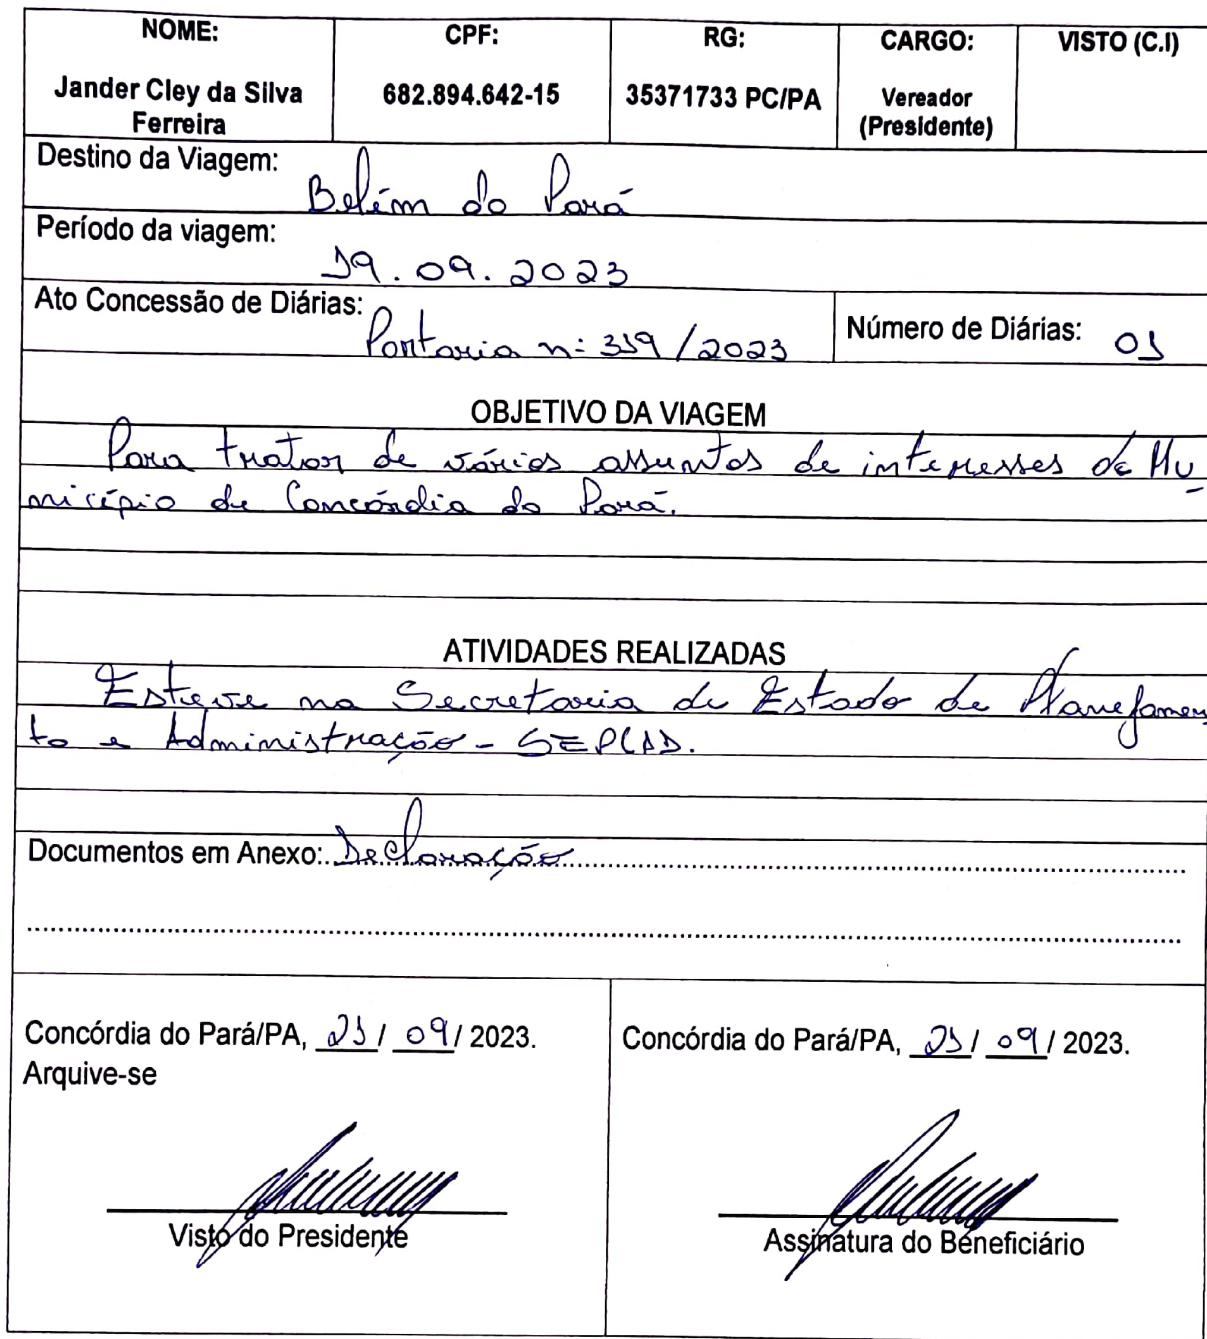 NOME: CPF: RG: CARGO: VISTO (C.I)
Jander Cley da Silva Ferreira 682.894.642-15 35371733 PC/PA Vereador (Presidente)
Destino da Viagem: Belém do Pará
Período da viagem: 19.09.2023
Ato Concessão de Diárias: Portaria n: 319/2023 Número de Diárias: 01
OBJETIVO DA VIAGEM
Para tratar de vários assuntos de interesses do Mu-
nicípio de Concórdia do Pará.
ATIVIDADES REALIZADAS
Esteve na Secretaria de Estado de Planejamen
to e Administração - SEPLAD.
Documentos em Anexo: Declaração
Concórdia do Pará/PA, 21/09/2023. Concórdia do Pará/PA, 21/09/2023.
Arquive-se
Visto do Presidente Assinatura do Beneficiário